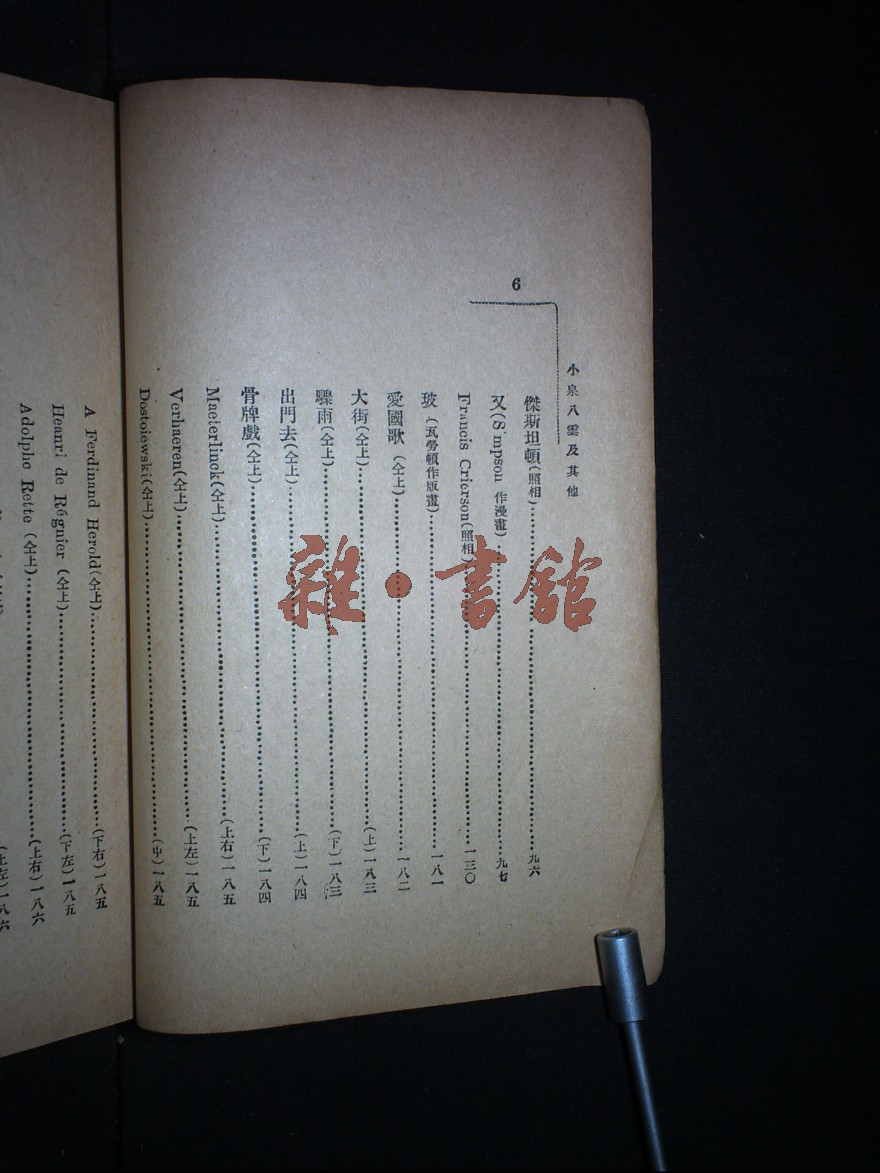 小泉八雲及其他
6
傑斯坦頓(照相)……九六
又(Simpson 作漫畫)……九七
Francis Crierson(照相)……一三〇
玻(瓦勞頓作版畫)……一八一
愛國歌(仝上)……一八二
大街(仝上)……(上)一八三
驟雨(仝上)……(下)一八三
出門去(仝上)……(上)一八四
骨牌戲(仝上)……(下)一八四
Maeterlinck(仝上)……(上右)一八五
Verhaeren(仝上)……(上左)一八五
Dostoiewski(仝上)……(中)一八五
A Ferdinand Herold(仝上)……(下右)一八五
Heanri de Régnier(仝上)……(下左)一八五
Adolphe Rette(仝上)……(上右)一八六
(上左)一八六
雜·書館